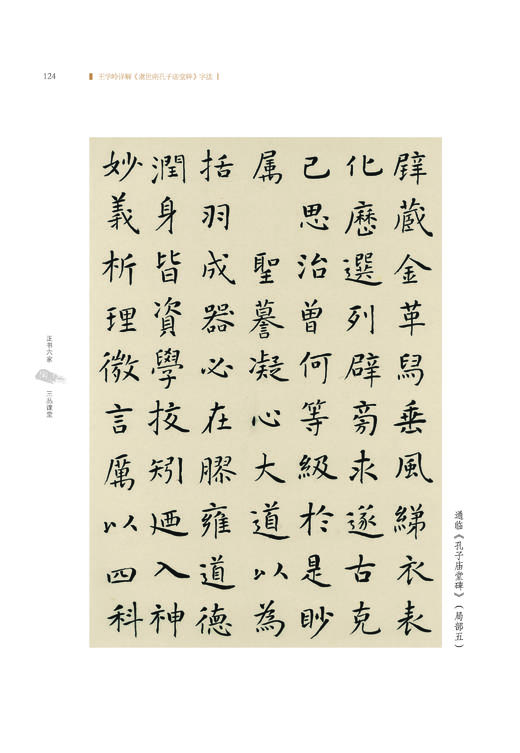 124
王学岭详解《虞世南孔子庙堂碑》字法
璧藏金革舄垂風綈衣表
化歷選列辟旁求遂古克
己思治曾何等級於是眇
属 聖謩凝心大道以為
括羽成器必在膠雍道德
潤身皆資學挍矧迺入神
妙義析理微言厲以四科
通临《孔子庙堂碑》（局部五）
正书六家
三丛课堂